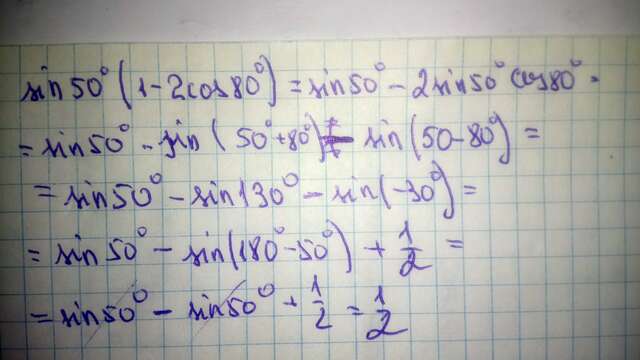 sin 50° (1 - 2cos 80°) = sin 50° - 2 sin 50° cos 80° =
= sin 50° - sin (50° + 80°) - sin (50 - 80°) =
= sin 50° - sin 130° - sin (-30°) =
= sin 50° - sin (180° - 50°) + 1/2 =
= sin 50° - sin 50° + 1/2 = 1/2